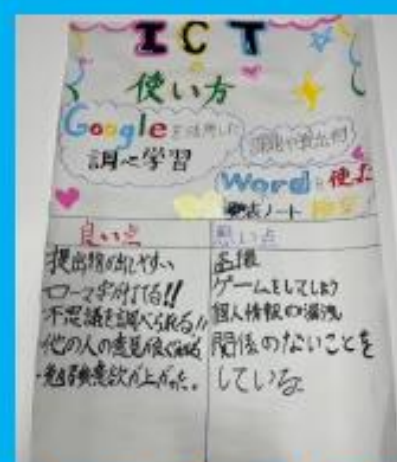 ICT
使い方
Googleを活用した
調べ学習
課題や提出物
Wordを使った
発表ノート
良い点
提出物が出しやすい
ローマ字が打てる!!
不思議を調べられる!!
他の人の意見が良く
・勉強意欲が上がった。
悪い点
盗撮
ゲームをしてしまう
個人情報の漏洩
関係のないことを
している